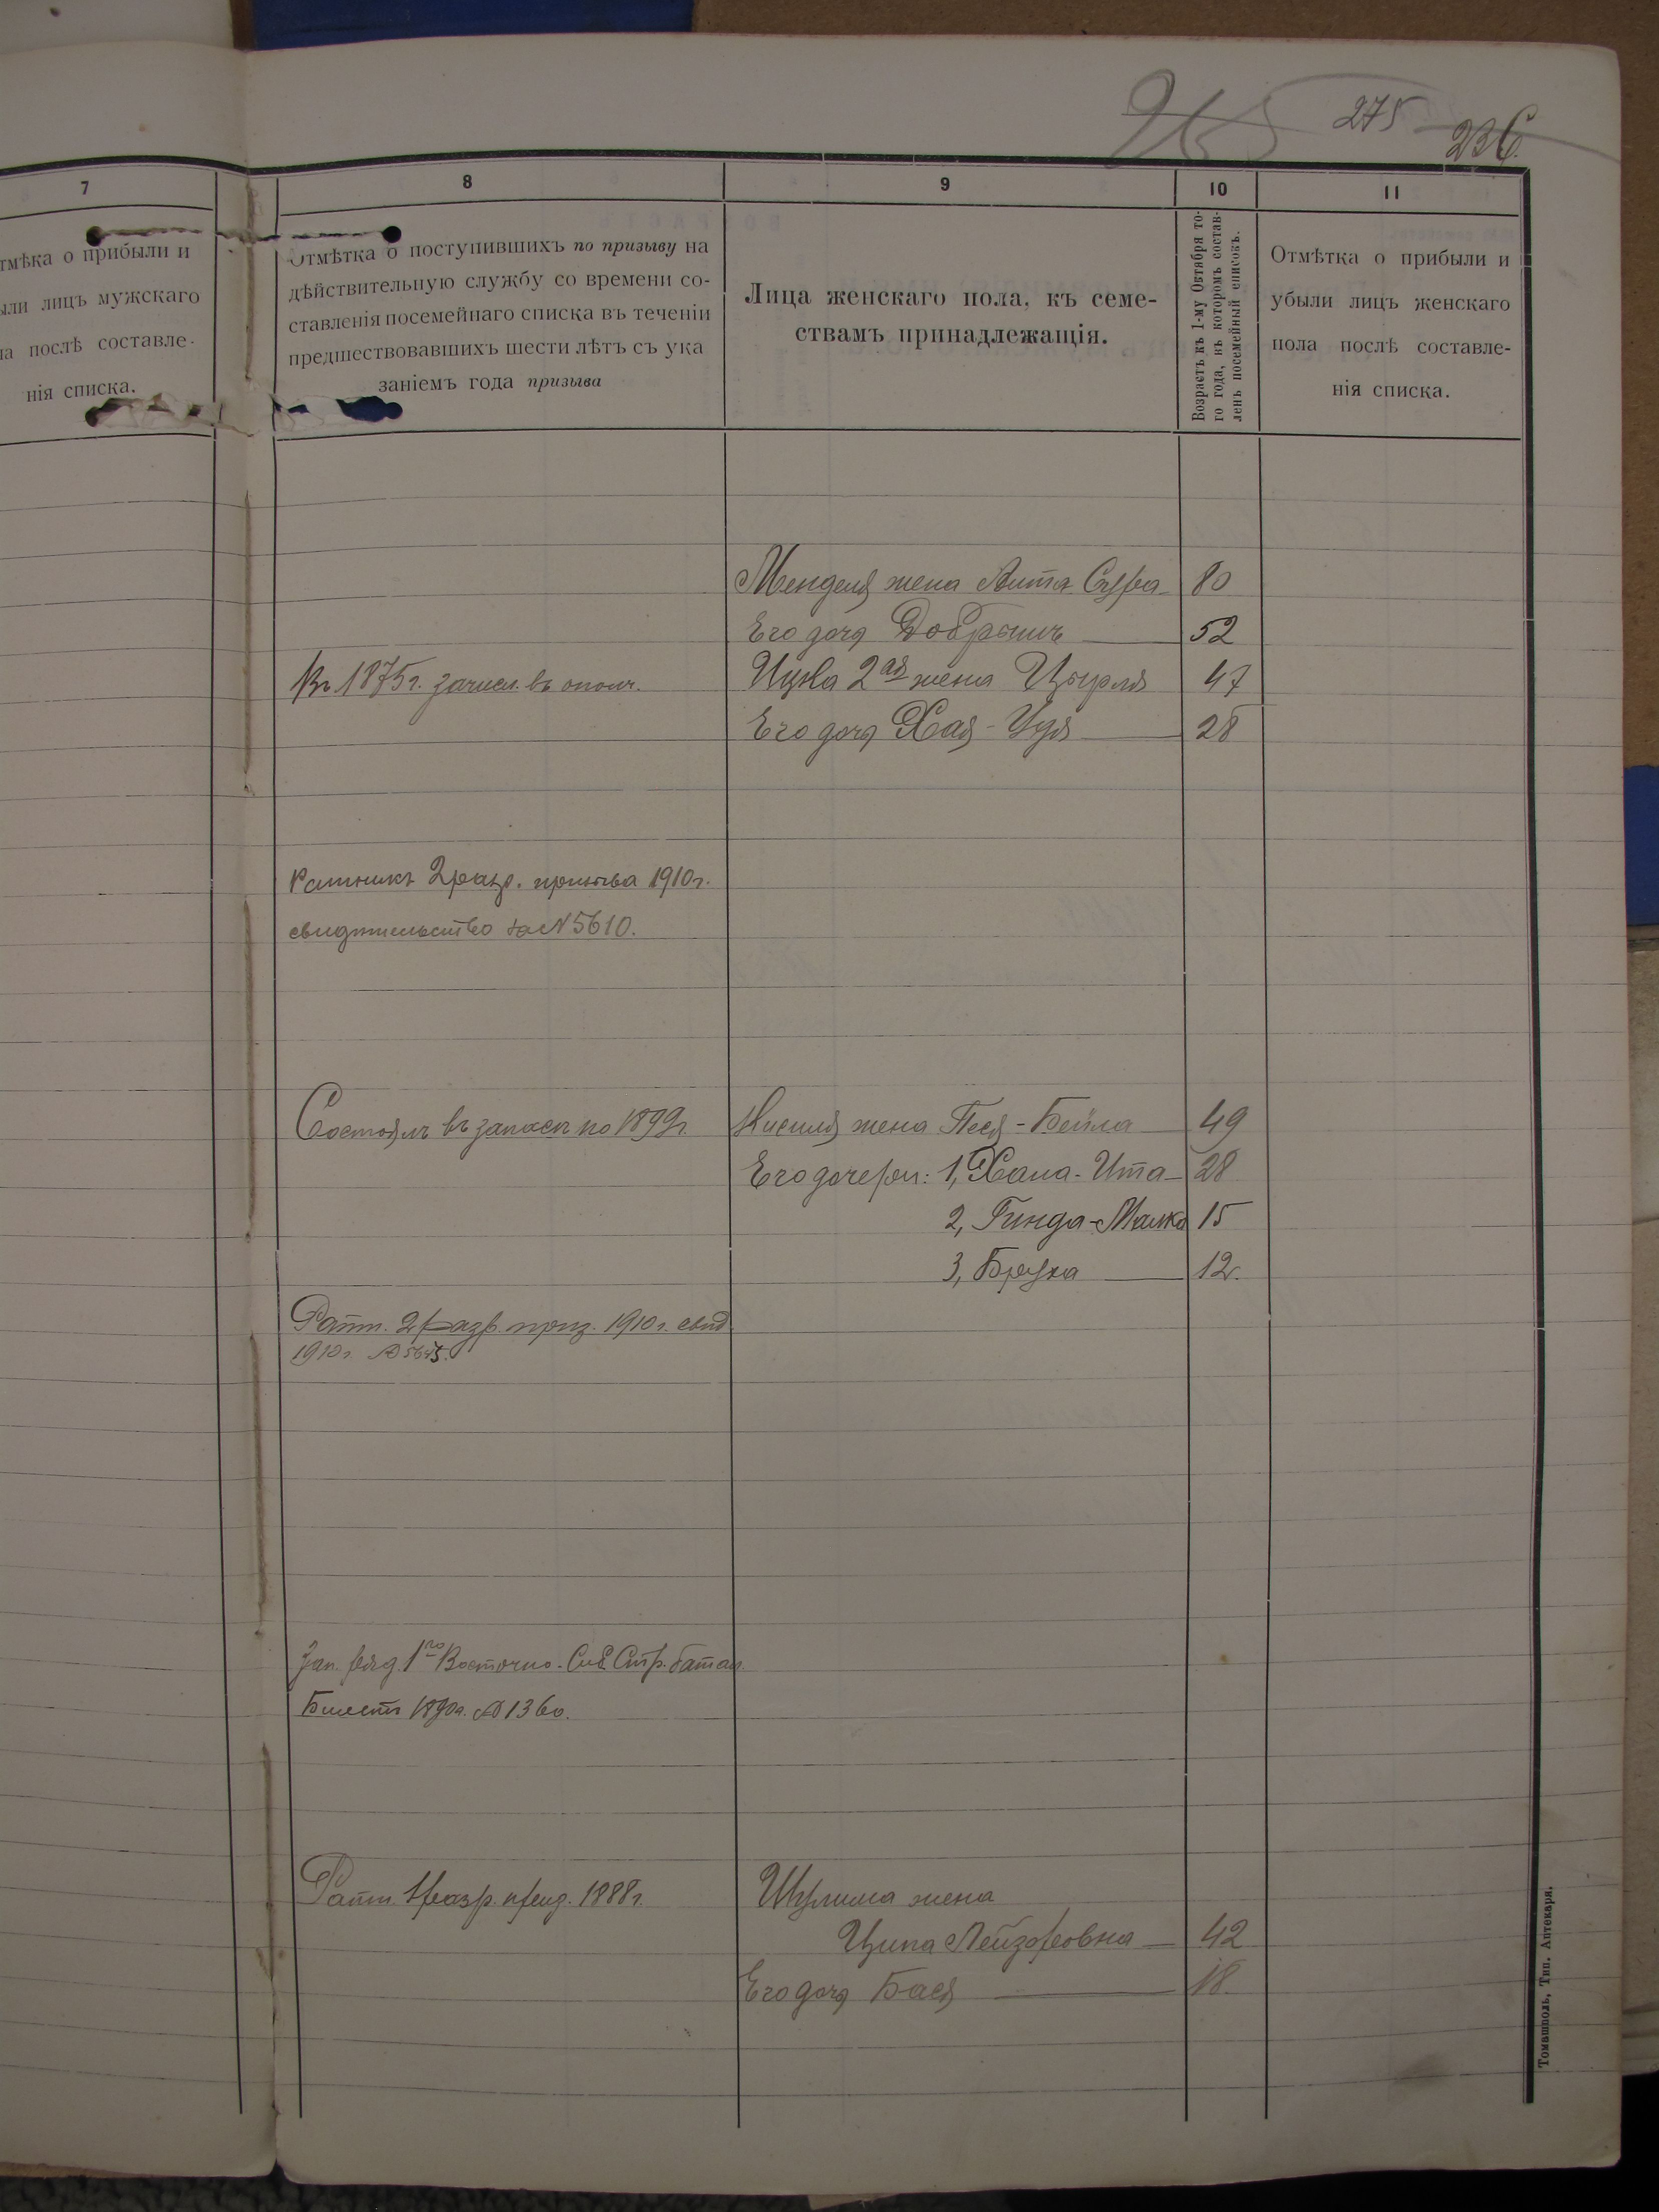 265 275 236.
7 8 9 10 11
тмѣка о прибыли и
ыли лицъ мужскаго
ла послѣ составле-
нія списка.
Отмѣтка о поступившихъ по призыву на
дѣйствительную службу со времени со-
ставленія посемейнаго списка въ теченіи
предшествовавшихъ шести лѣтъ съ ука
заніемъ года призыва
Лица женскаго пола, къ семе-
ствамъ принадлежащія.
Возрастъ къ 1-му Октября то-
го года, въ которомъ состав-
ленъ посемейный списокъ.
Отмѣтка о прибыли и
убыли лицъ женскаго
пола послѣ составле-
нія списка.
Менделя жена Аита Сура 80
Его дочь Добрышъ 52
Въ 1875 г. зачисл. въ ополч. Ицка 2ая жена Цырля 47
Его дочь Хая-Идя 28
Ратникъ 2 разр. призыва 1910 г.
свидѣтельство за N 5610.
Состоялъ въ запасѣ по 1899 г. Кисиля жена Песя-Бейла 49
Его дочери: 1, Хана-Ита 28
2, Гинда-Малка 15
3, Бруха 12.
Ратн. 2 разр. приз. 1910 г. свид.
1910 г. №
Зап. ряд. 1го Восточно-Сиб. Стр. батал.
Билетъ 1890 г. № 1360.
Ратн. 1 разр. 1888 г. Шулима жена
Ципа Лейзоровна 42
Его дочь Бася 18.
Томашполь, Тип. Аптекаря.